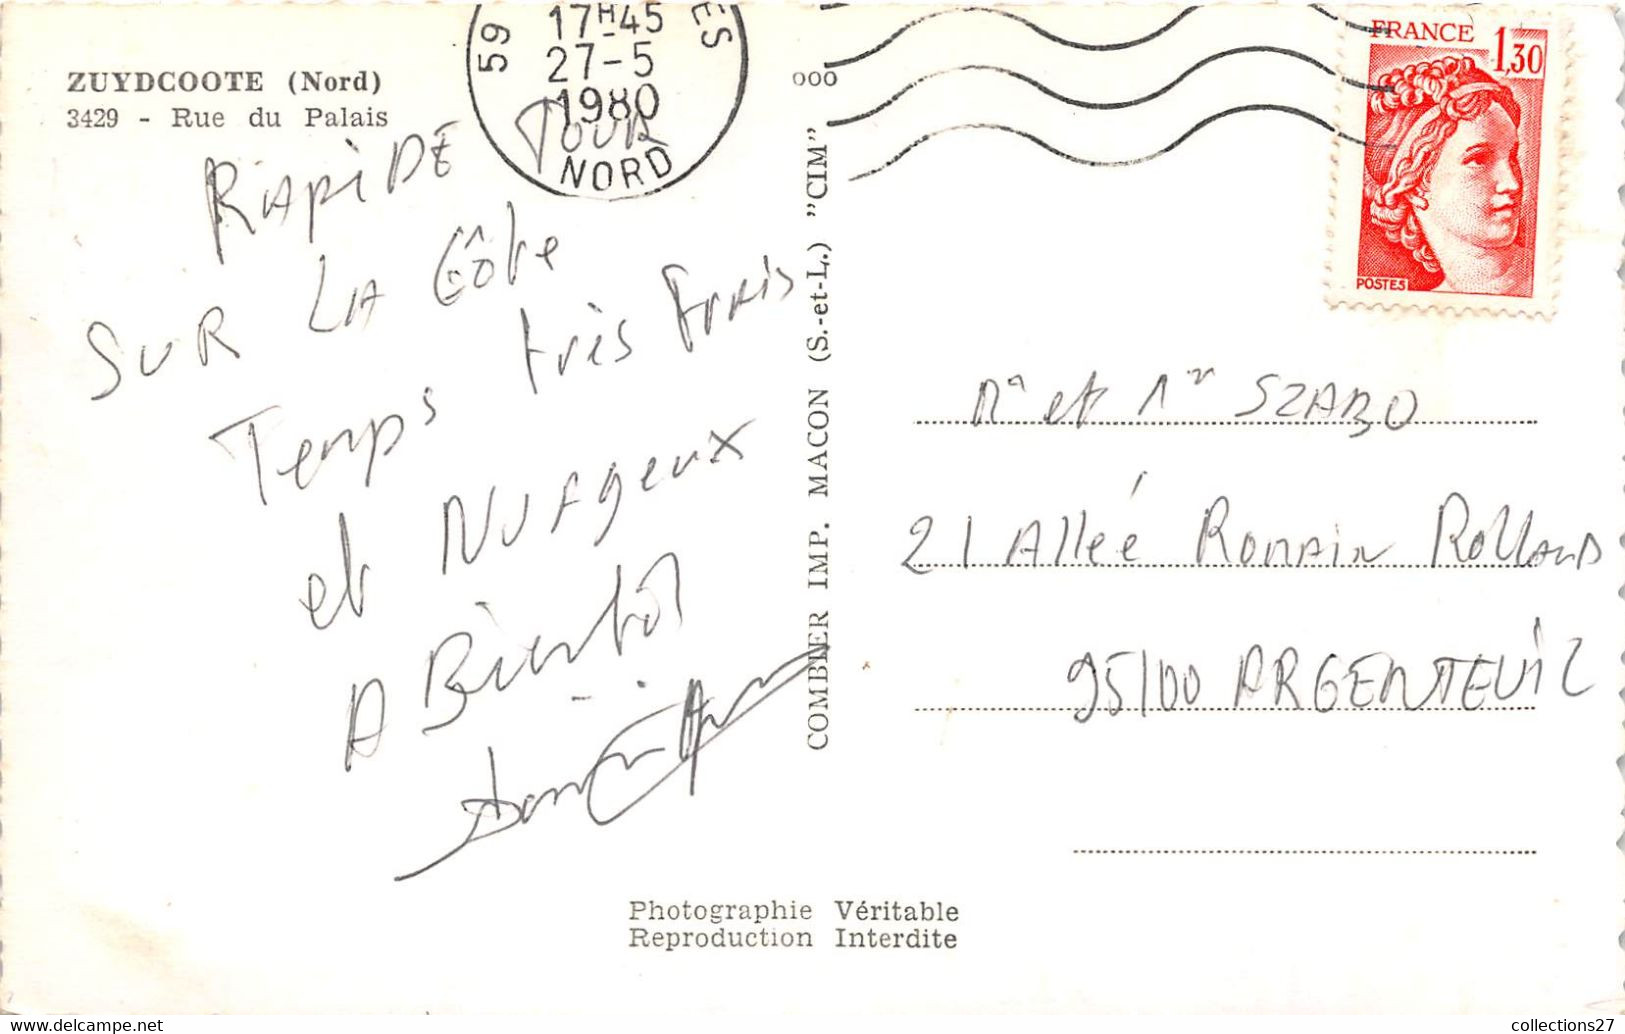 ZUYDCOOTE (Nord)
3429 - Rue du Palais
59
17H45
27-5
1980
ES
NORD
000
FRANCE
1,30
POSTES
RAPiDE TOUR
SUR LA Côte
Temps très FRAis
et NUAgeux
A Bientôt
COMBIER IMP. MACON (S.-et-L.) "CIM"
Mr et Mme SZABO
21 Allée ROMAIN ROLLAND
95100 ARGENTEUIL
Photographie Véritable
Reproduction Interdite
https://www.delcampe.net
collections27